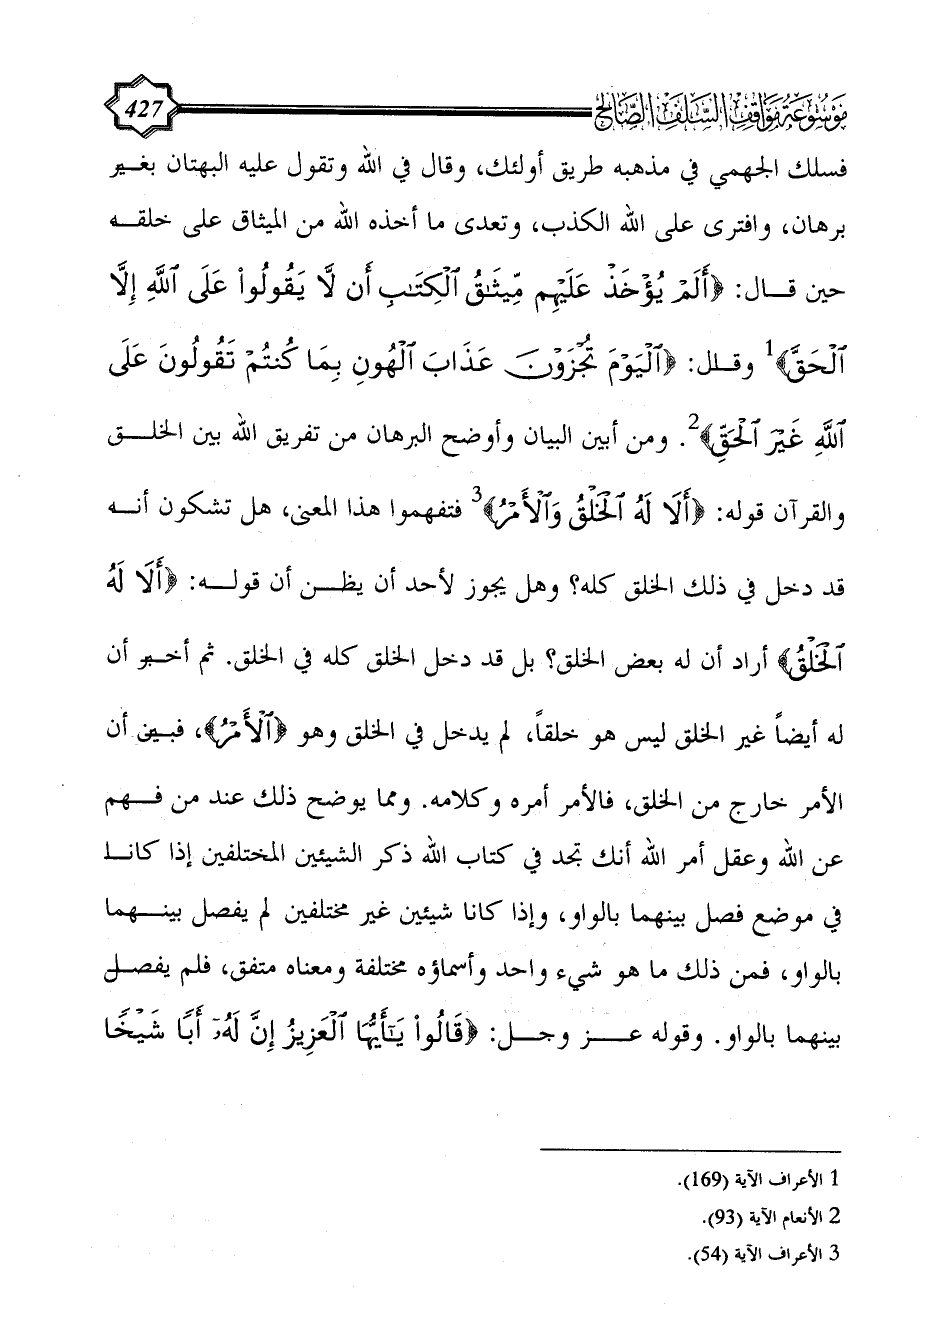 موسوعة مواقف السلف الصالح
427
فسلك الجهمي في مذهبه طريق أولئك، وقال في الله وتقول عليه البهتان بغير
برهان، وافترى على الله الكذب، وتعدى ما أخذه الله من الميثاق على خلقه
حين قال: ﴿أَلَمْ يُؤْخَذْ عَلَيْهِم مِّيثَٰقُ ٱلْكِتَٰبِ أَن لَّا يَقُولُوا۟ عَلَى ٱللَّهِ إِلَّا
ٱلْحَقَّ﴾1 وقال: ﴿ٱلْيَوْمَ تُجْزَوْنَ عَذَابَ ٱلْهُونِ بِمَا كُنتُمْ تَقُولُونَ عَلَى
ٱللَّهِ غَيْرَ ٱلْحَقِّ﴾2. ومن أبين البيان وأوضح البرهان من تفريق الله بين الخلق
والقرآن قوله: ﴿أَلَا لَهُ ٱلْخَلْقُ وَٱلْأَمْرُ﴾3 فتفهموا هذا المعنى، هل تشكون أنه
قد دخل في ذلك الخلق كله؟ وهل يجوز لأحد أن يظن أن قوله: ﴿أَلَا لَهُ
ٱلْخَلْقُ﴾ أراد أن له بعض الخلق؟ بل قد دخل الخلق كله في الخلق. ثم أخبر أن
له أيضاً غير الخلق ليس هو خلقاً، لم يدخل في الخلق وهو ﴿ٱلْأَمْرُ﴾، فبين أن
الأمر خارج من الخلق، فالأمر أمره وكلامه. ومما يوضح ذلك عند من فهم
عن الله وعقل أمر الله أنك تجد في كتاب الله ذكر الشيئين المختلفين إذا كانا
في موضع فصل بينهما بالواو، وإذا كانا شيئين غير مختلفين لم يفصل بينهما
بالواو، فمن ذلك ما هو شيء واحد وأسماؤه مختلفة ومعناه متفق، فلم يفصل
بينهما بالواو. وقوله عز وجل: ﴿قَالُوا۟ يَٰٓأَيُّهَا ٱلْعَزِيزُ إِنَّ لَهُۥٓ أَبًا شَيْخًا
1 الأعراف الآية (169).
2 الأنعام الآية (93).
3 الأعراف الآية (54).